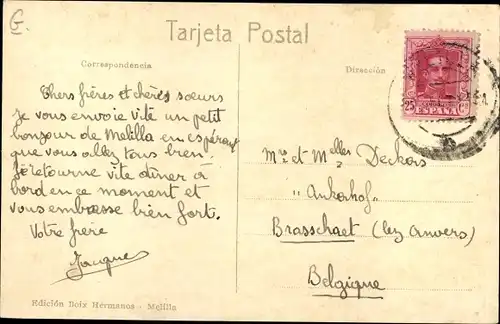 G.
Tarjeta Postal
Correspondencia
Dirección
25 Cs
ESPAÑA
Chers frères et chères sœurs
je vous envoie vite un petit
bonjour de Melilla en espérant
que vous allez tous bien.
je retourne vite dîner à
bord en ce moment et
vous embrasse bien fort.
Votre frère
Jacques
Mrs et Melles Deckers
"Ankerhof"
Brasschaet (lez Anvers)
Belgique
Edición Boix Hermanos - Melilla